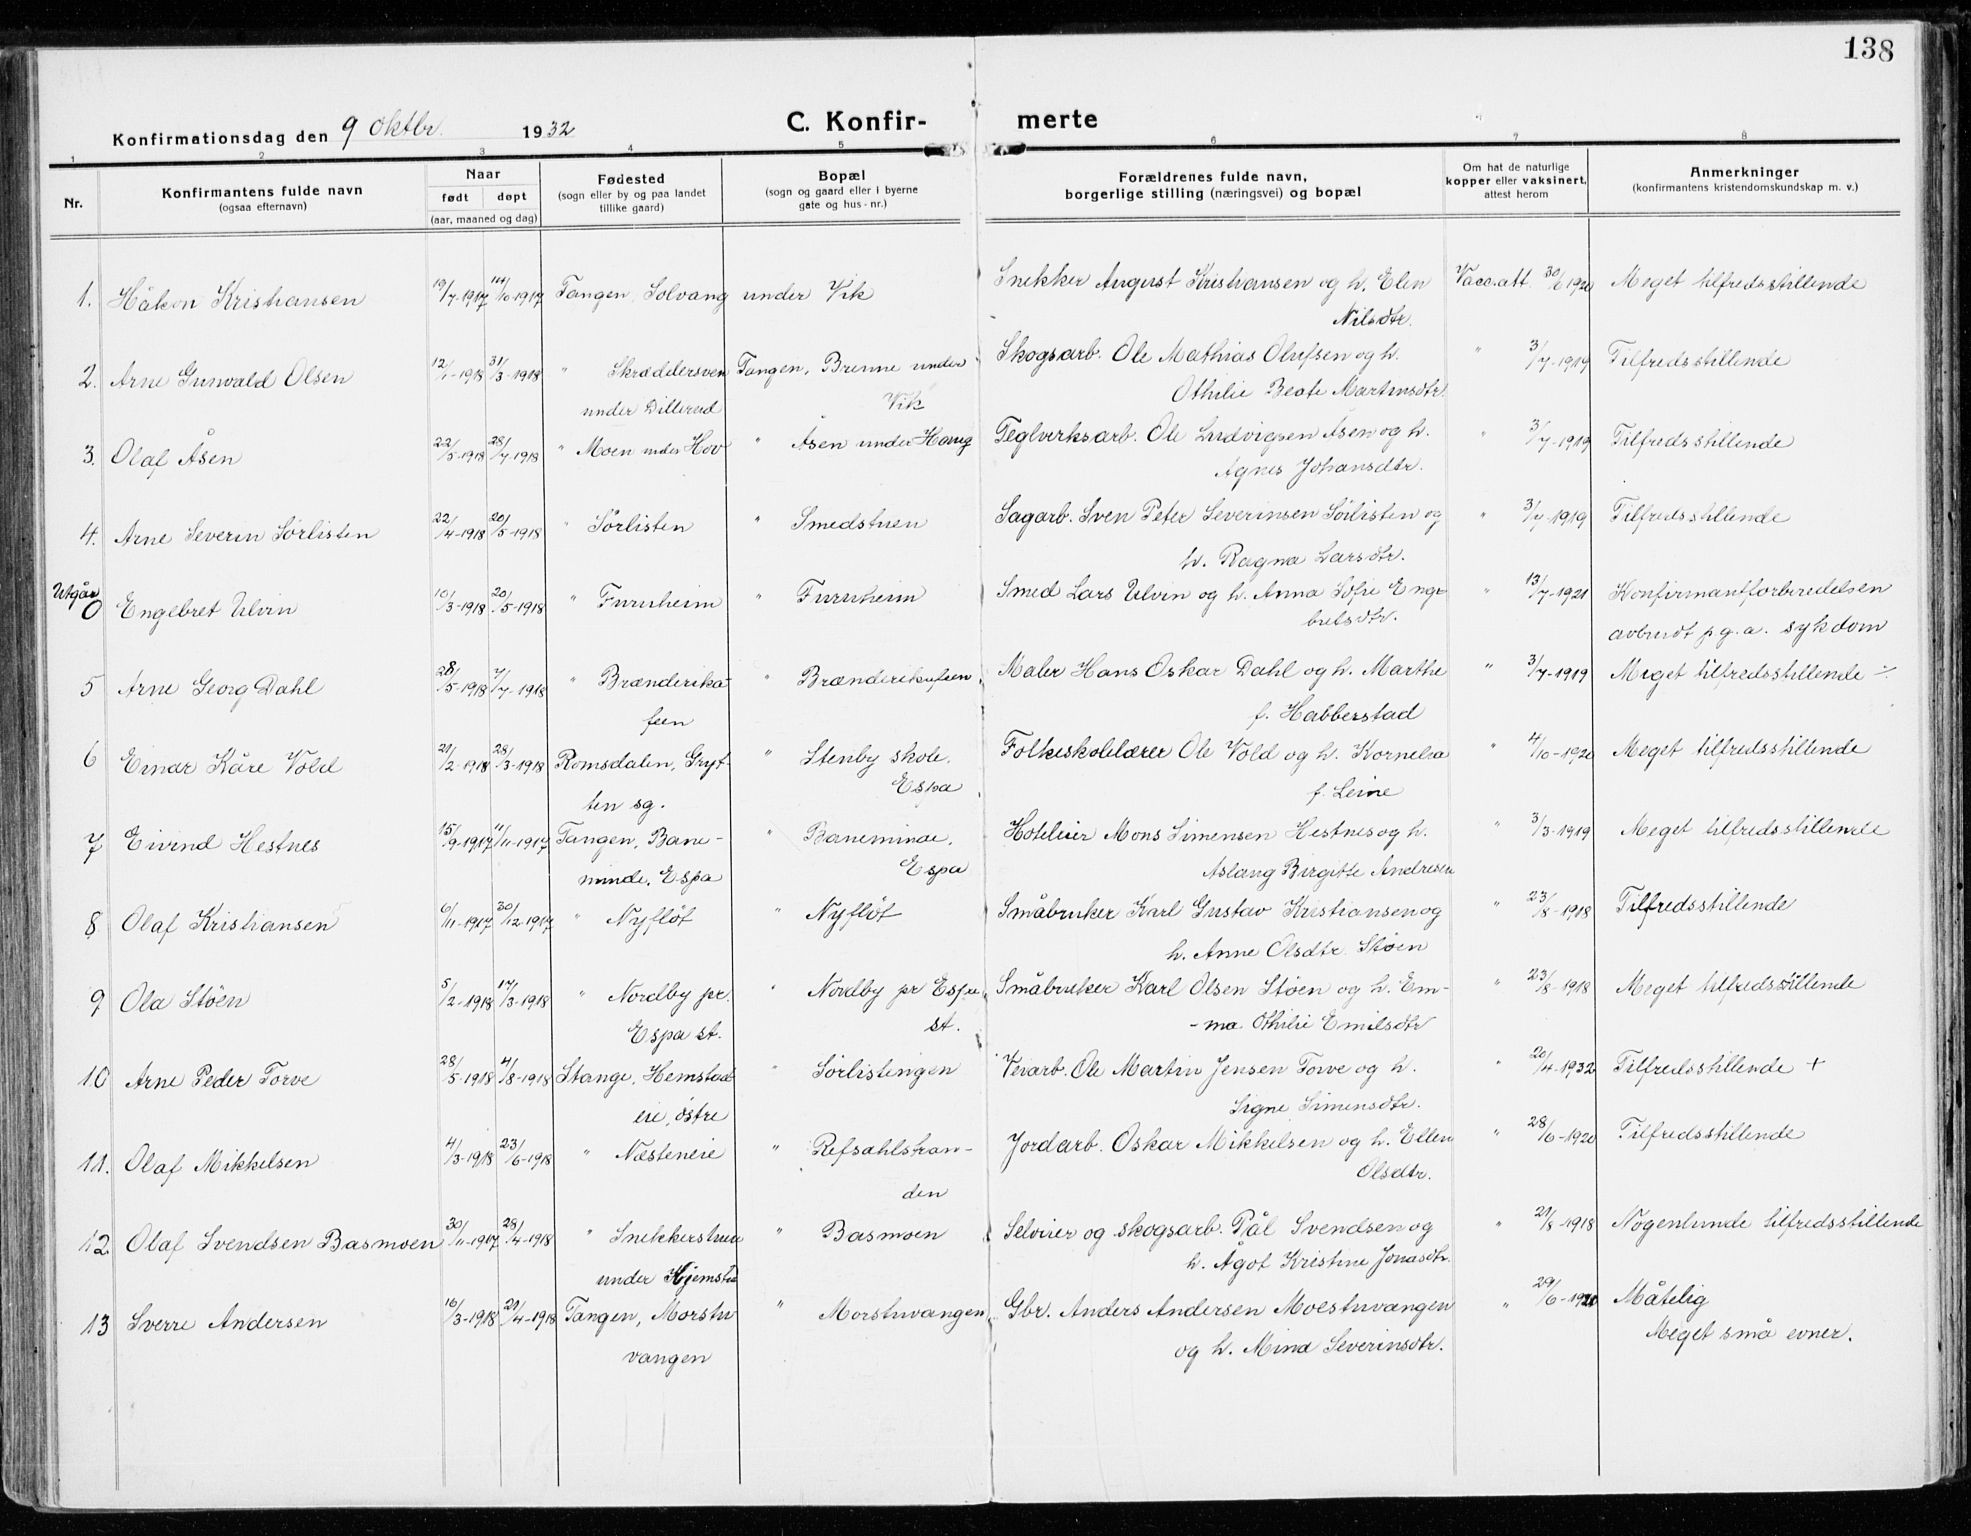 138
C. Konfir- merte
Konfirmationsdag den 9 Oktbr. 1932
1 2 3 4 5 6 7 8
Nr.
Konfirmantens fulde navn
(ogsaa efternavn)
Naar
født døpt
(aar, maaned og dag)
Fødested
(sogn eller by og paa landet
tillike gaard)
Bopæl
(sogn og gaard eller i byerne
gate og hus-nr.)
Forældrenes fulde navn,
borgerlige stilling (næringsvei) og bopæl
Om hat de naturlige
kopper eller vaksinert,
attest herom
Anmerkninger
(konfirmantens kristendomskundskap m. v.)
1. Håkon Kristiansen 19/7-1917 14/10-1917 Tangen, Solvang under Vik Snekker August Kristiansen og h. Elen Vacc.att. 30/6 1920 Meget tilfredsstillende
Nilsdtr.
2. Arne Gunvald Olsen 12/1-1918 31/3-1918 " Skræddersven Tangen, Brenne under Skogsarb. Ole Mathias Olufsen og h. " 3/7-1919 Tilfredsstillende
under Dillerud Vik Othilie Beate Martinsdtr.
3. Olaf Åsen 22/5-1918 28/7-1918 " Moen under Hov " Åsen under Haug Teglverksarb. Ole Ludvigsen Åsen og h. " 3/7-1919 Tilfredsstillende
Agnes Johansdtr.
4. Arne Severin Sørlisten 22/4-1918 20/5-1918 " Sørlisten " Smedstuen Sagarb. Sven Peter Severinsen Sörlisten og " 3/7-1919 Tilfredsstillende
h. Ragna Larsdtr.
Utgår
0 Engebret Ulvin 10/3-1918 20/5-1918 " Furuheim " Furuheim Smed Lars Ulvin og h. Anna Sofie Enge- " 13/7-1921 Konfirmantforberedelsen
bretsdtr. avbrudt p.g.a. sykdom
5 Arne Georg Dahl 28/5-1918 7/7-1918 " Brænderika- " Brænderikafeen Maler Hans Oskar Dahl og h. Marthe " 3/7-1919 Meget tilfredsstillende ÷
feen f. Habberstad
6 Einar Kåre Vold 21/2-1918 28/3-1918 Romsdalen, Gryt- " Stenby skole, Folkeskolelærer Ole Vold og h. Kornelia " 4/10-1920 Meget tilfredsstillende
ten sg. Espa f. Leine
7 Eivind Hestnes 15/9-1917 11/11-1917 Tangen, Bane- " Baneminde, Hotelleier Mons Simensen Hestnes og h. " 3/3-1919 Meget tilfredsstillende
minde, Espa Espa Aslaug Birgitte Andresen
8. Olaf Kristiansen 6/11-1917 30/12-1917 " Nyfløt " Nyfløt Småbruker Karl Gustav Kristiansen og " 23/8-1918 Tilfredsstillende
h. Anne Olsdtr. Støen
9 Ola Støen 5/2-1918 17/3-1918 " Nordby pr. " Nordby pr Espa Småbruker Karl Olsen Støen og h. Em- " 23/8-1918 Meget tilfredsstillende
Espa st. st. -ma Othilie Emilsdtr
10 Arne Peder Torve 28/5-1918 4/8-1918 Stange, Hemstad- " Sörlistingen Veiarb. Ole Martin Jensen Torve og h. " 20/4-1932 Tilfredsstillende +
eie, østre Signe Simensdtr.
11. Olaf Mikkelsen 4/3-1918 23/6-1918 " Næsteneie " Refsahlstran- Jordarb. Oskar Mikkelsen og h. Ellen " 28/6-1920 Tilfredsstillende
den Olsdtr.
12. Olaf Svendsen Basmoen 30/11-1917 28/4-1918 " Snekkerstuen " Basmoen Selveier og skogsarb. Pål Svendsen og " 21/8-1918 Nogenlunde tilfredsstillende
under Hjemstu h. Ågot Kristine Jonasdtr.
13 Sverre Andersen 16/3-1918 21/4-1918 Tangen, Morstu- " Morstuvangen, Gbr. Anders Andersen Moestuvangen " 29/6-1921 Måtelig
vangen og h. Mina Severinsdtr. Meget små evner.